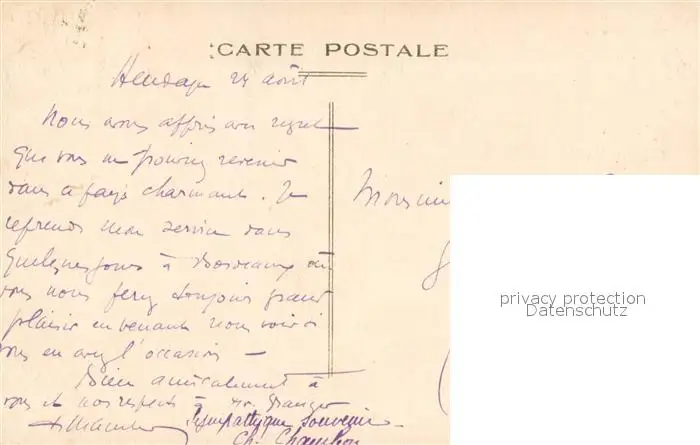 CARTE POSTALE
Hendaye 24 août
Nous avons appris avec regret
que vous ne pouviez revenir
dans ce pays charmant. Je
reprends mon service dans
quelques jours à Bordeaux où
vous nous ferez toujours grand
plaisir en venant nous voir si
vous en avez l'occasion —
Bien amicalement à
vous et nos respects à Mr. Granger
Sympathique souvenir
Ch.
Monsieur
privacy protection
Datenschutz